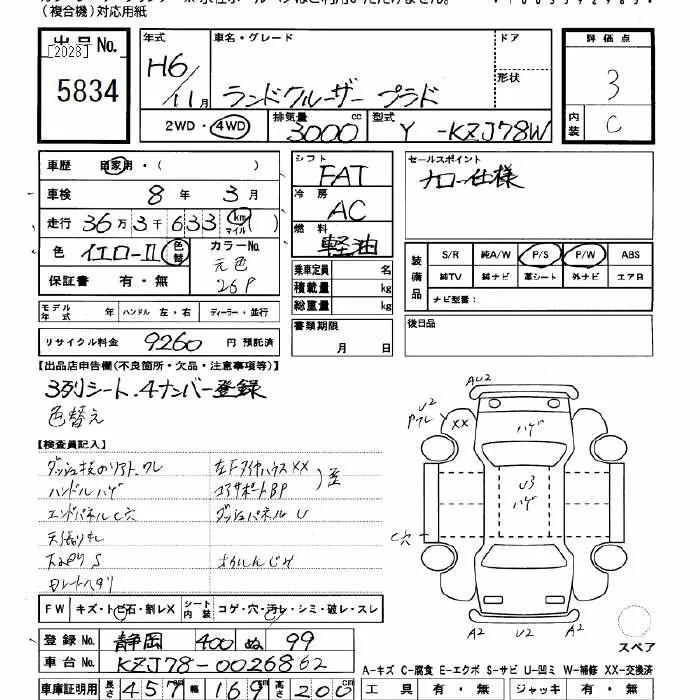 (複合機)対応用紙
出品No.
[2028]
5834
年式 車名・グレード ドア
H6/11月 ランドクルーザー プラド
形状
2WD・4WD 排気量 3000 cc 型式 Y -KZJ78W
評価点
3
内装 C
車歴 自家用・( )
車検 8年 3月
走行 36万3千633 km マイル ( )
色 イエローII 色替
カラーNo. 元色 26P
保証書 有・無
モデル年式 年 ハンドル 左・右 ディーラー・並行
リサイクル料金 9260 円 預託済
シフト FAT
冷房 AC
燃料 軽油
乗車定員 名
積載量 kg
総重量 kg
書類期限
月 日
セールスポイント
ナロー仕様
装備品 S/R 純A/W P/S P/W ABS
純TV 純ナビ 革シート 外ナビ エアB
ナビ型番:
後日品
【出品店申告欄(不良箇所・欠品・注意事項等)】
3列シート.4ナンバー登録
色替え
【検査員記入】
ハンドルハゲ
エンドパネルC穴 ダッシュパネル U
天張り
S
FW キズ・トビ石・割レX シート内装 コゲ・穴・汚レ・シミ・破レ・スレ
登録No. 静岡 400 ぬ 99
車台No. KZJ78-0026862
車庫証明用 長さ 457 幅 169 高さ 200
AU2
U2
XX
ハゲ
U3
ハゲ
C穴
A2 U2 A2
スペア
A-キズ C-腐食 E-エクボ S-サビ U-凹ミ W-補修 XX-交換済
工具 有・無 ジャッキ 有・無